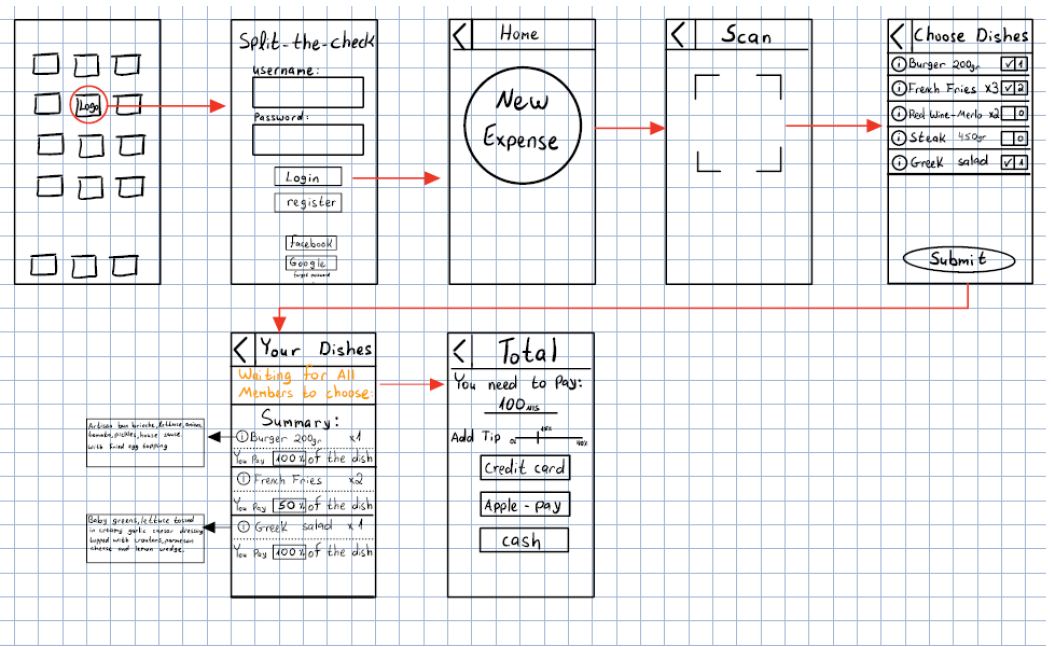 Logo
Split-the-check
username:
Password:
Login
register
Facebook
Google
forgot password
Home
New
Expense
Scan
Choose Dishes
Burger 200gr ✓ 1
French Fries x3 ✓ 2
Red Wine-Merlo x2 0
Steak 450gr 0
Greek salad ✓ 1
Submit
Your Dishes
Waiting for All
Members to choose:
Summary:
Burger 200gr x1
You Pay 100% of the dish
French Fries x2
You Pay 50% of the dish
Greek salad x1
You Pay 100% of the dish
Artisan bun brioche, lettuce, onion,
tomato, pickles, house sauce
with fried egg topping
Baby greens, lettuce tossed
in creamy garlic caesar dressing
topped with croutons, parmesan
cheese and lemon wedge.
Total
You need to Pay:
100 NIS
Add Tip 0% 15% 40%
Credit card
Apple-pay
cash